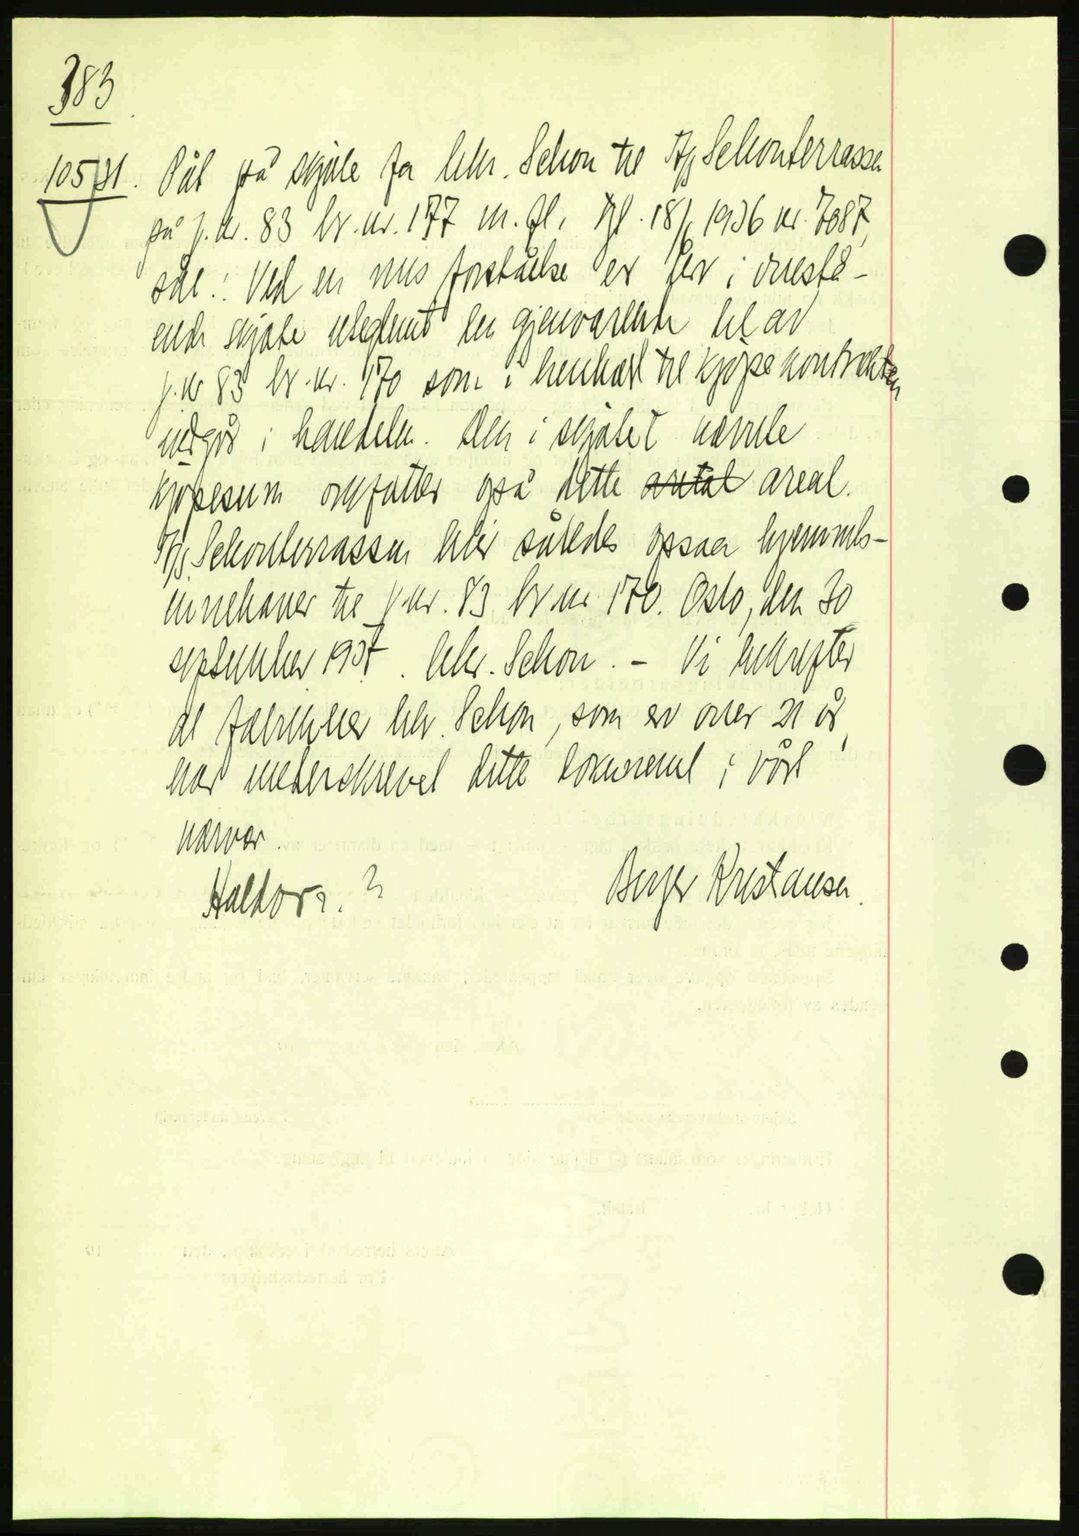 383
10531. Påt på skjøte fra Chr. Schou til A/S Schouterrassen
på g.nr. 83 br.nr. 177 m.fl. tgl. 18/ 1936 nr. 7087,
sål.: Ved en mis forståelse er der i ovenstå-
ende skjøte uteglemt den gjenværende del av
g.nr 83 br.nr. 170 som i henhold til kjøpekontrakten
medgår i handelen. Den i skjøtet nævnte
kjøpesum omfatter også dette antal areal.
A/S Schouterrassen blir således ogsaa hjemmels-
innehaver til g.nr. 83 br nr 170. Oslo, den 30
september 1937. Chr. Schou. – Vi bekrefter
at fabrikeier Chr. Schou, som er over 21 år,
har underskrevet dette dokument i vårt
nærvær.
Haldor ?. ? Birger Kristiansen.